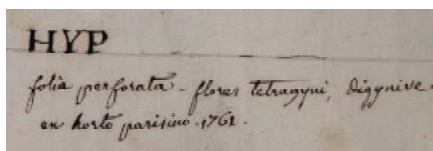 HYP
folia perforata - flores tetragyni, digynive -
ex horto parisino. 1761.